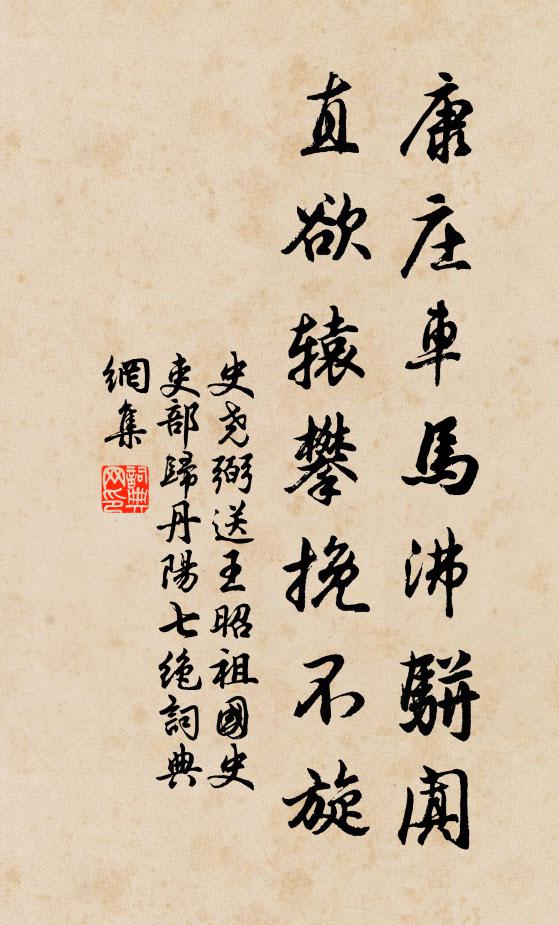 康庄車馬沸駢闐
直欲辕攀挽不旋
史尧弼送王昭祖國史
吏部歸丹陽七绝詞典
網集
詞典網印